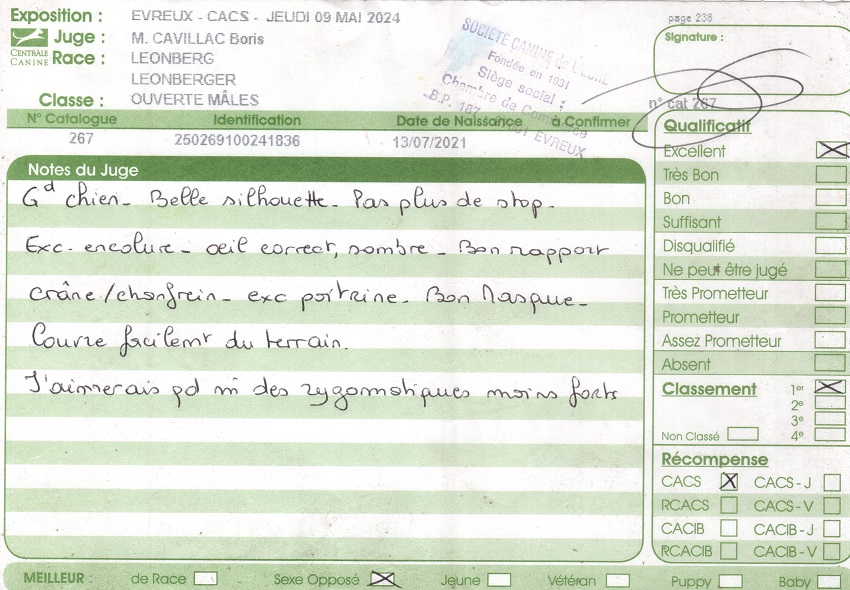 Exposition : EVREUX - CACS - JEUDI 09 MAI 2024
page 238
CENTRALE CANINE
Juge : M. CAVILLAC Boris
Race : LEONBERG
LEONBERGER
Classe : OUVERTE MÂLES
SOCIETE CANINE de L'EURE
Fondée en 1931
Siège social :
Chambre de Commerce
B.P. 187 EVREUX
Signature :
n° cat 267
N° Catalogue Identification Date de Naissance à Confirmer
267 250269100241836 13/07/2021
Notes du Juge
Gd chien - Belle silhouette - Pas plus de stop -
Exc. encolure - oeil correct, sombre - Bon rapport
crâne/chanfrein - exc poitrine - Bon Masque -
Couvre facilemt du terrain.
J'aimerais qd m des zygomatiques moins forts
Qualificatif
Excellent
Très Bon
Bon
Suffisant
Disqualifié
Ne peut être jugé
Très Prometteur
Prometteur
Assez Prometteur
Absent
Classement 1er
2e
3e
Non Classé 4e
Récompense
CACS X CACS - J
RCACS CACS - V
CACIB CACIB - J
RCACIB CACIB - V
MEILLEUR : de Race Sexe Opposé Jeune Vétéran Puppy Baby